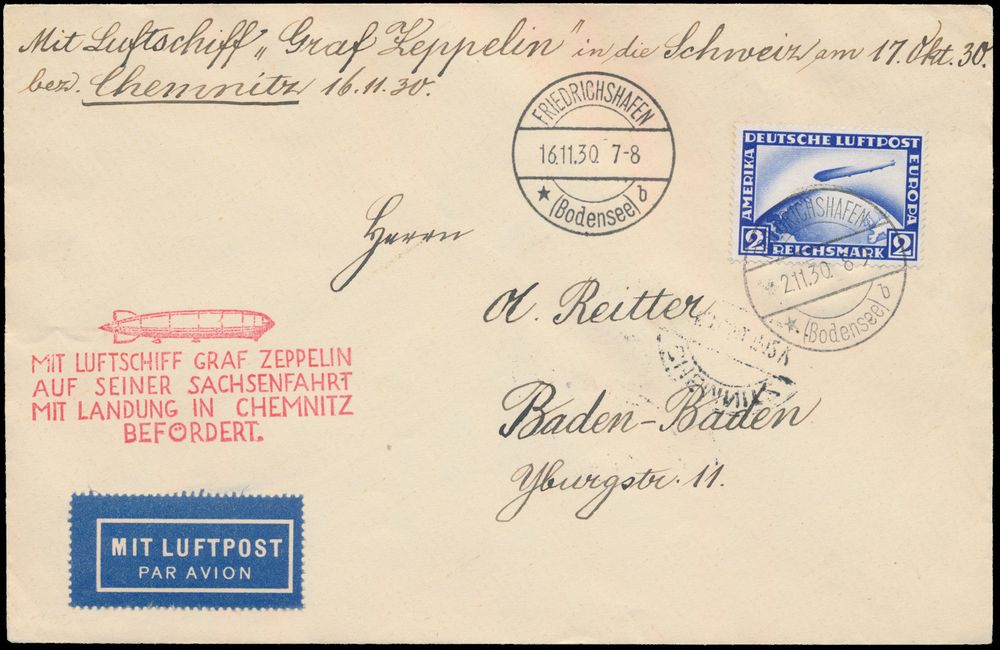 Mit Luftschiff „Graf Zeppelin" in die Schweiz am 17. Okt. 30.
bez. Chemnitz 16.11.30.
FRIEDRICHSHAFEN
16.11.30. 7-8
(Bodensee) b
DEUTSCHE LUFTPOST
AMERIKA
EUROPA
2 REICHSMARK 2
FRIEDRICHSHAFEN
2.11.30. 8-9
(Bodensee) b
Herrn
A. Reitter
Baden-Baden
Yburgstr. 11.
CHEMNITZ
MIT LUFTSCHIFF GRAF ZEPPELIN
AUF SEINER SACHSENFAHRT
MIT LANDUNG IN CHEMNITZ
BEFÖRDERT.
MIT LUFTPOST
PAR AVION